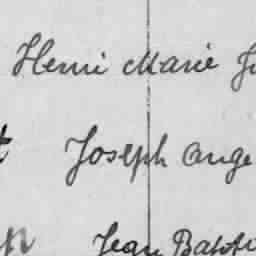 Henri Marie
t Joseph Ange
Jean Bapti